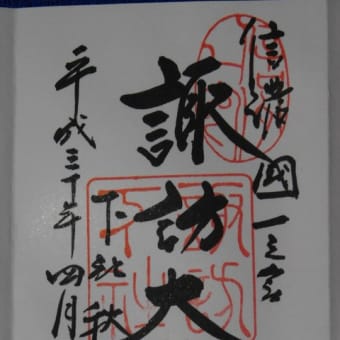 信濃國一之宮
諏訪大
下社秋
平成三十年四月